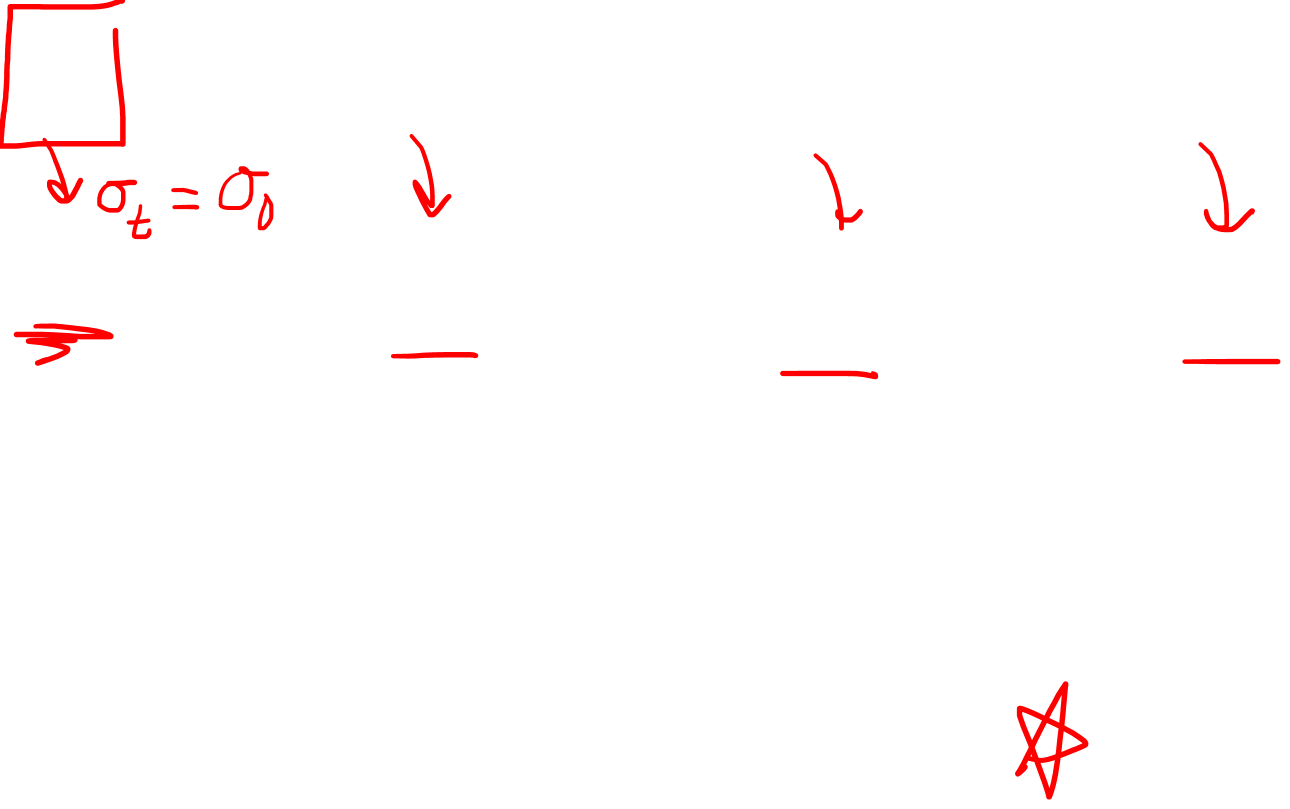 σ_t = σ_0